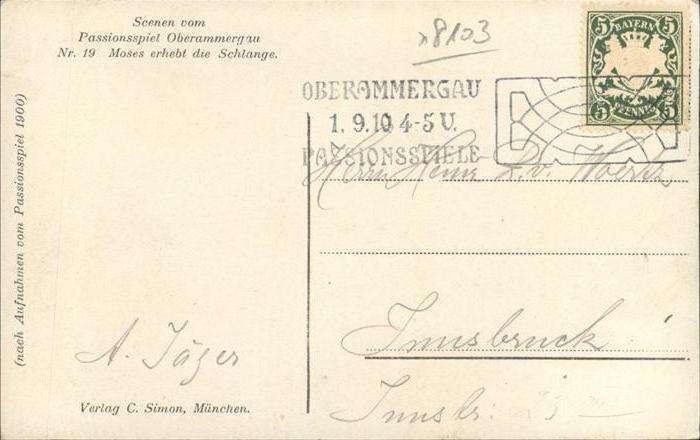 Scenen vom
Passionsspiel Oberammergau
Nr. 19 Moses erhebt die Schlange.
x8103
5 BAYERN 5
5 PFENNIG 5
OBERAMMERGAU
1.9.10 4-5 U.
PASSIONSSPIELE
Herrn
(nach Aufnahmen vom Passionsspiel 1900)
Innsbruck
A. Jäger
Innsbr:
Verlag C. Simon, München.